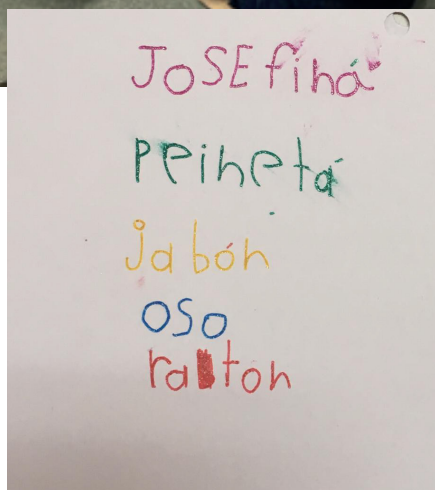 JOSEfiná
peinetá
jabón
oso
ratón